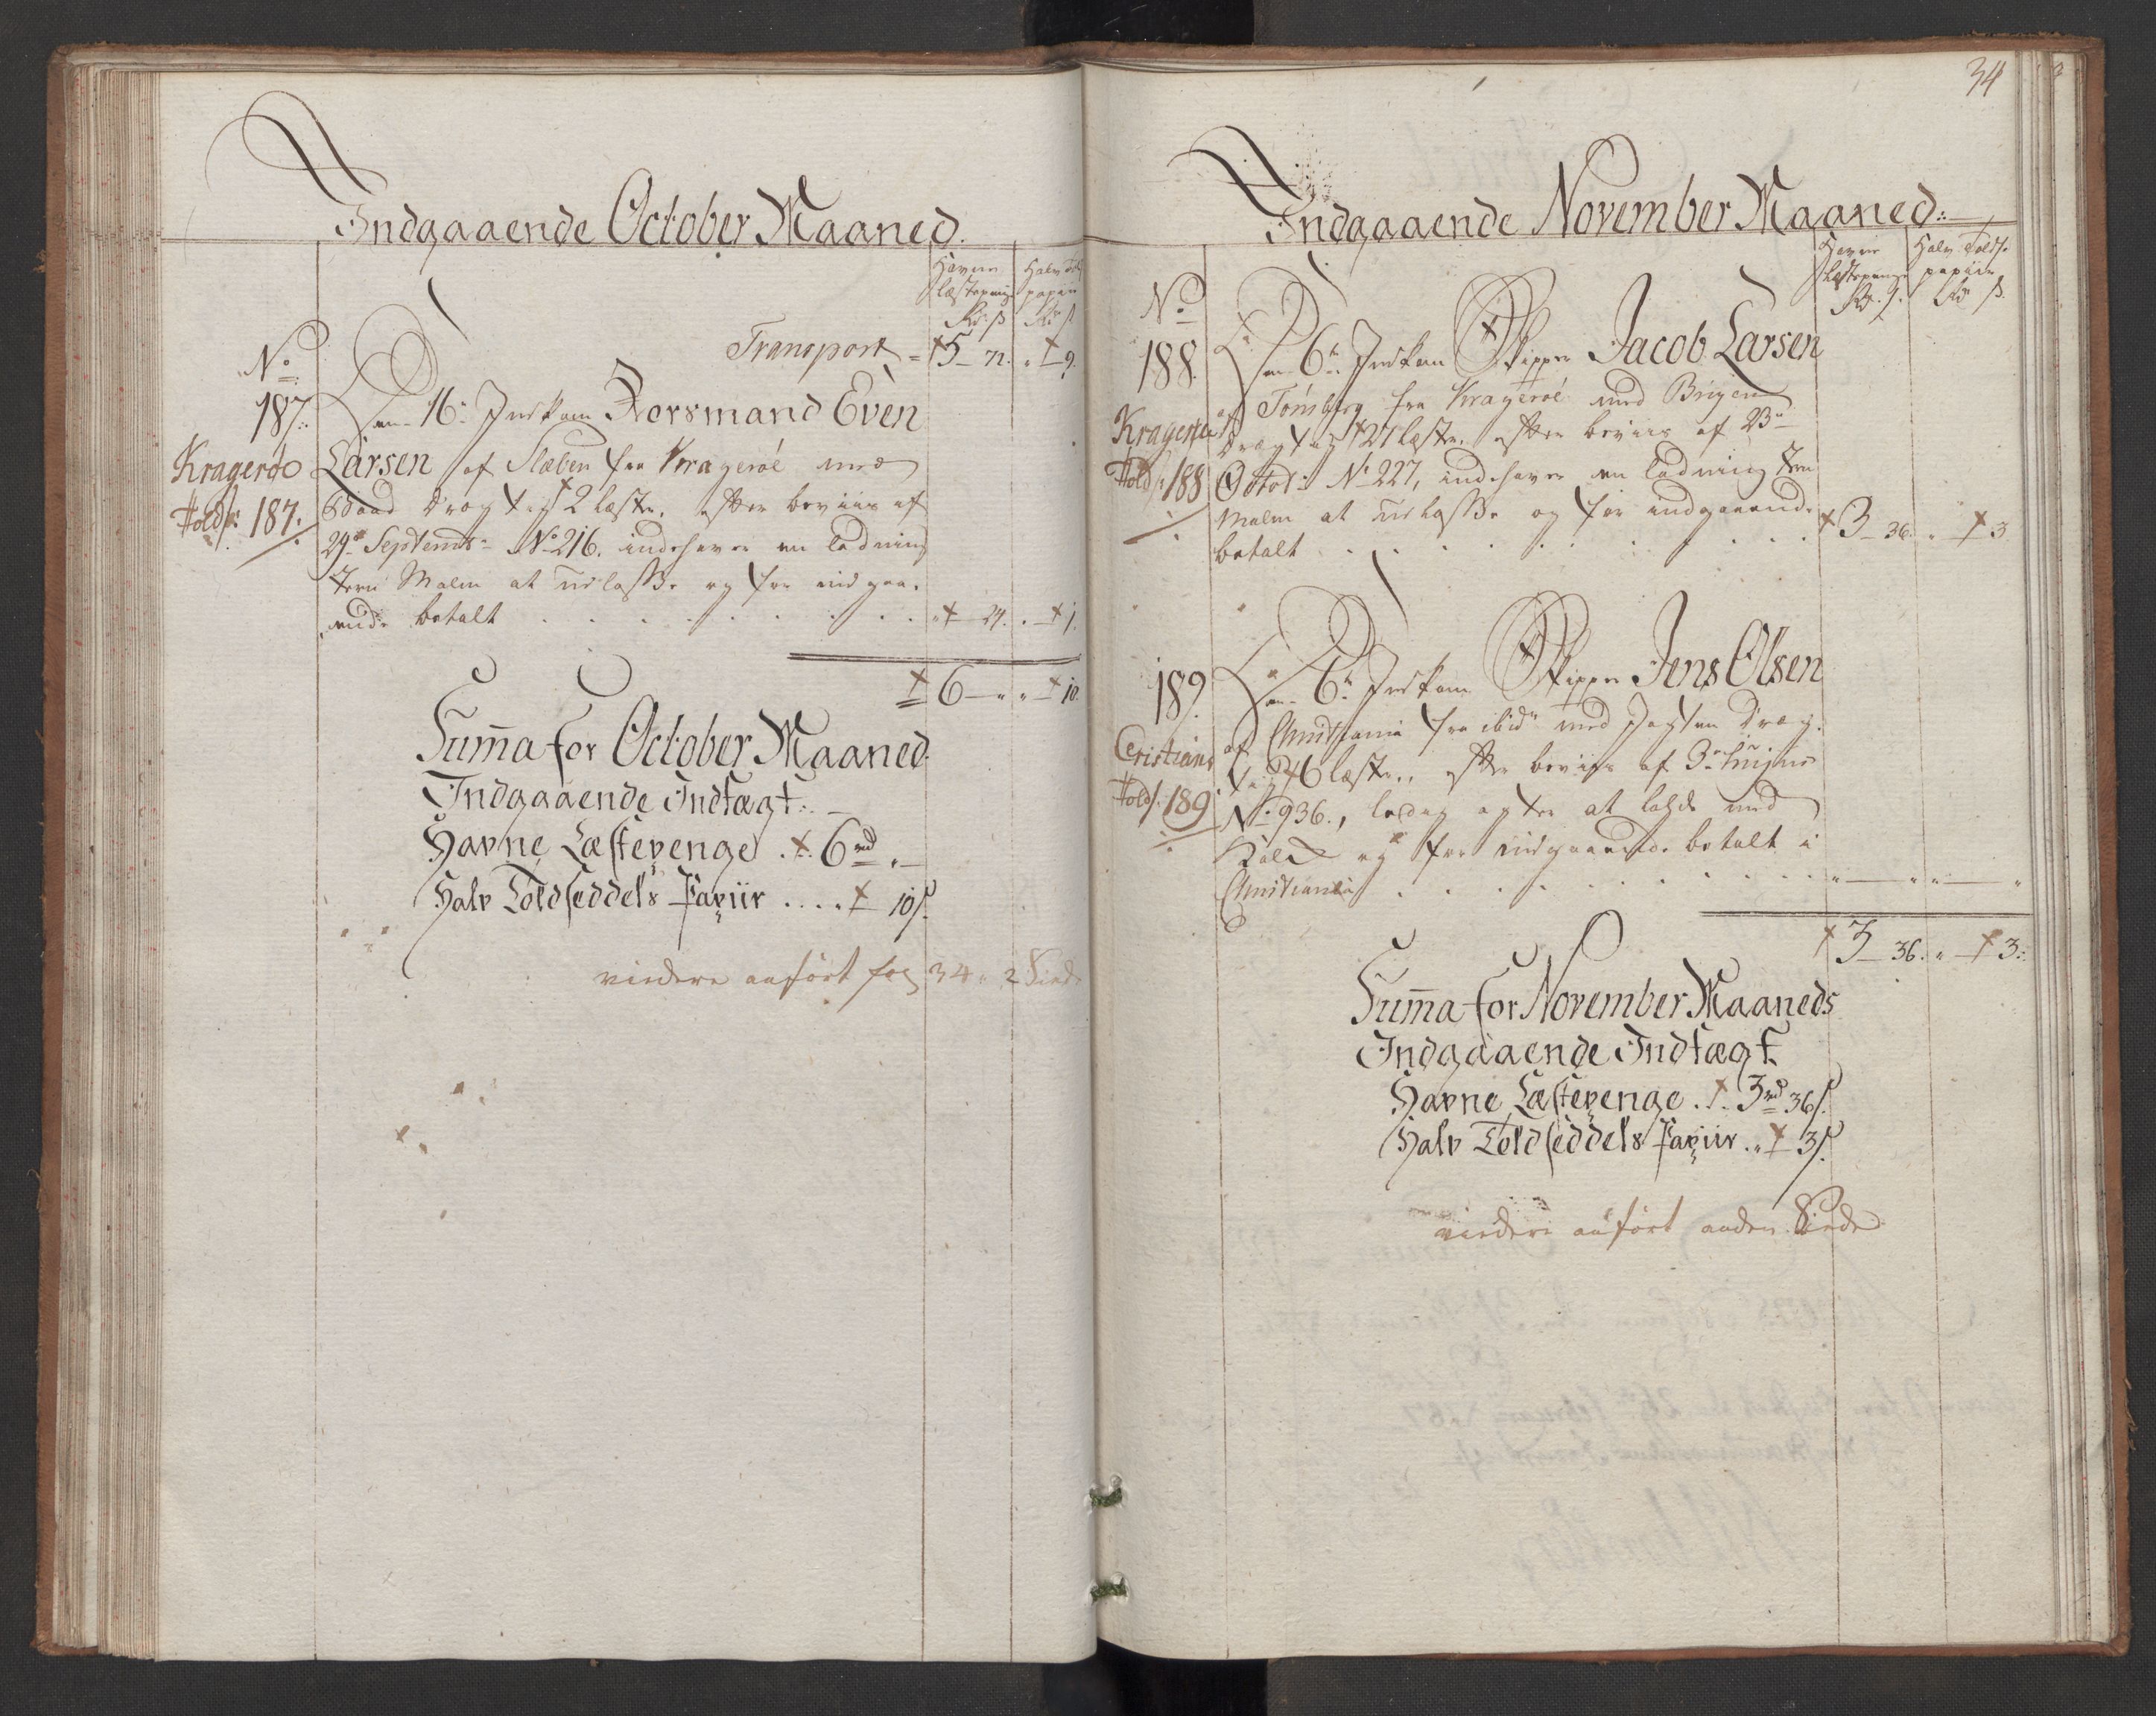 Indgaaende October Maaned.
Havne
læstepenge
Rd. ß
Halv Told
papiir
Rd ß
Transport = 5 72. " 9.
No.
187.
Kragerøe
Tolds: 187.
Den 16de Indkom Rorsmand Even
Larsen af fra Kragerøe med
Baad Drægt. 2 læster, efter beviis af
29de Septembr No. 216. indehaver en ladning
Jern Malm at udlosse og for indgaa-
ende betalt . . . . . . . . . " 24. " 1.
6 " " 10.
Summa for October Maaned.
Indgaaende Indtægt.
Havne Læstepenge . . 6 rd " –
Halv Toldseddels Papiir . . . . 10 ß.
viedere anført fog 34. 2 Siede
34
Indgaaende November Maaned.
Havne
læstepenge
Rd. ß.
Halv Tolds.
papiir
Rd ß.
No.
188.
Kragerøe
Tolds. 188
Den 6te Indkom Skipper Jacob Larsen
af Tønsberg fra Kragerøe med Brigen
drægtig 27 læster, efter beviis af 23de
Octobr: No. 227, indehaver en ladning Jern
Malm at udlosse og for indgaaende
betalt . . . . . . . . . 3 36. " 3
189.
Cristiania
Tolds. 189
Den 6te Indkom Skipper Jens Olsen
af Christiania fra ibid: med Jagten Dræg-
tig 46 læster, efter beviis af 3de hujus
No. 936., at med
og for indgaaende betalt i
Christiania . . . . . . . . " " " "
3 36. " 3.
Summa for November Maaneds
Indgaaende Indtægt
Havne Læstepenge . . 3 rd 36 ß.
Halv Toldseddels Papiir . . 3 ß.
viedere anført anden Siede